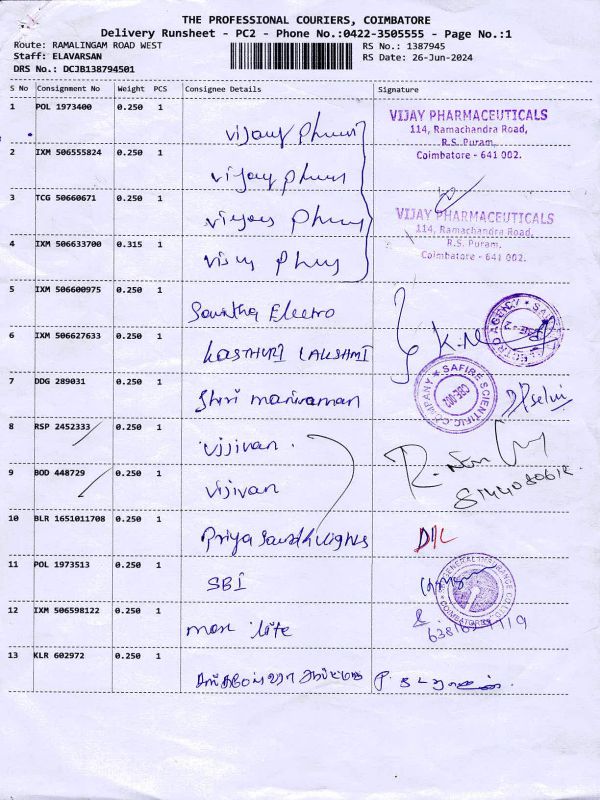 THE PROFESSIONAL COURIERS, COIMBATORE
Delivery Runsheet - PC2 - Phone No.:0422-3505555 - Page No.:1
Route: RAMALINGAM ROAD WEST
RS No.: 1387945
Staff: ELAVARSAN
RS Date: 26-Jun-2024
DRS No.: DCJB138794501
S No Consignment No Weight PCS Consignee Details Signature
1 POL 1973400 0.250 1
VIJAY PHARMACEUTICALS
114, Ramachandra Road,
R.S. Puram,
Coimbatore - 641 002.
2 IXM 506555824 0.250 1
3 TCG 50660671 0.250 1
VIJAY PHARMACEUTICALS
114, Ramachandra Road,
R.S. Puram,
Coimbatore - 641 002.
4 IXM 506633700 0.315 1
5 IXM 506600975 0.250 1 Savitha Electro
6 IXM 506627633 0.250 1 KASTHURI LAKSHMI
SAFIRE SCIENTIFIC COMPANY
CBE-002
7 DDG 289031 0.250 1 Shri manivannan
8 RSP 2452333 0.250 1 vijivan
9 BOD 448729 0.250 1 vijivan
10 BLR 1651011708 0.250 1 D/L
11 POL 1973513 0.250 1 SBI
12 IXM 506598122 0.250 1 max lite
13 KLR 602972 0.250 1